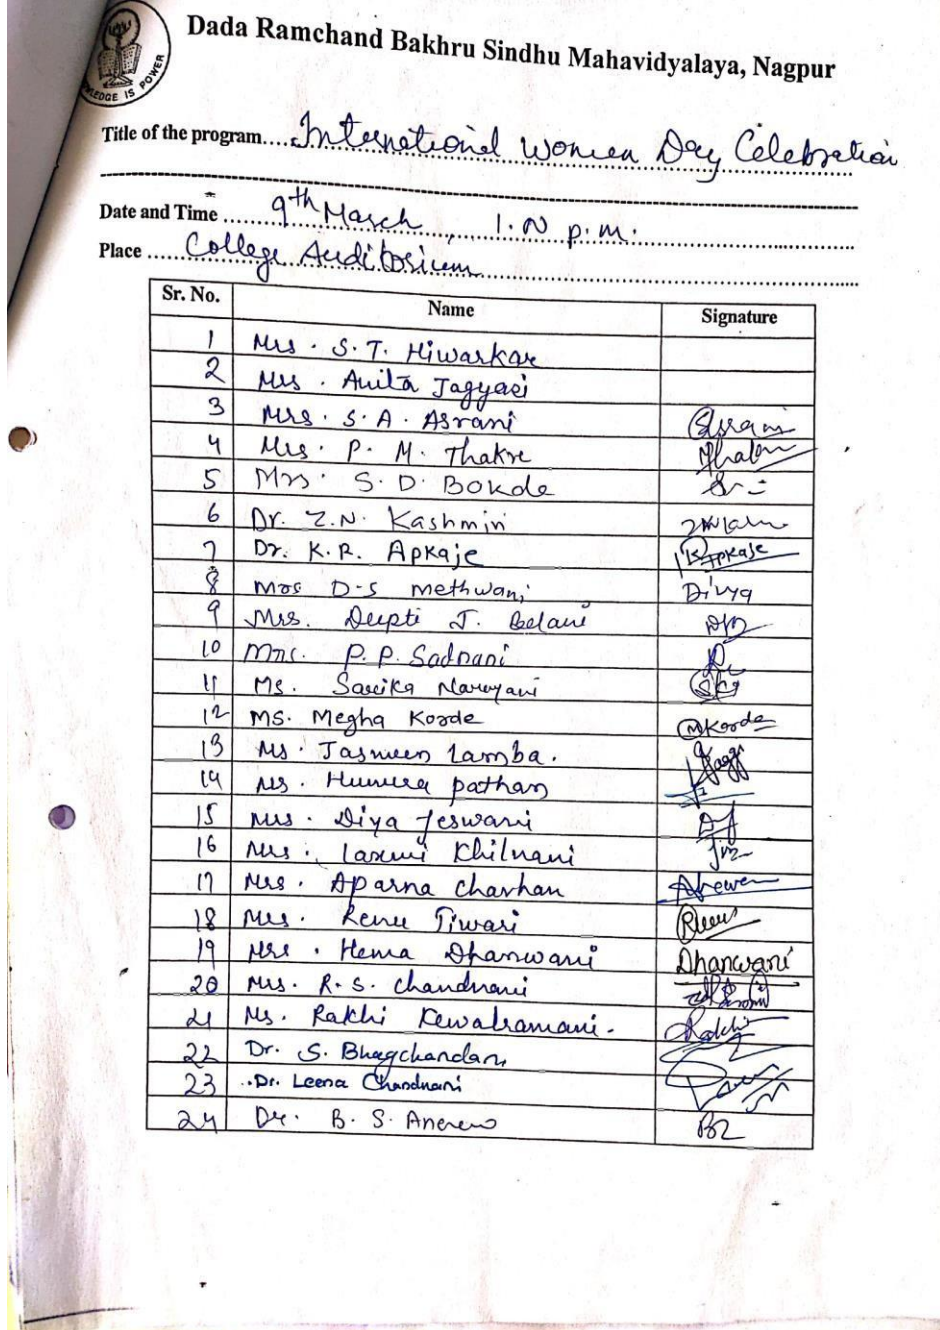 Dada Ramchand Bakhru Sindhu Mahavidyalaya, Nagpur
KNOWLEDGE IS POWER
Title of the program.... International Women Day Celebration
Date and Time ..... 9th March, 1.00 p.m.
Place ..... College Auditorium
Sr. No. Name Signature
1 Mrs. S.T. Hiwarkar
2 Mrs. Anita Jagyasi
3 Mrs. S.A. Asrani
4 Mrs. P. M. Thakre
5 Mrs. S. D. Bokde
6 Dr. Z.N. Kashmiri
7 Dr. K.R. Apkaje RApkaje
8 Mrs D-S Methwani Divya
9 Mrs. Deepti J. Belani
10 Mrs. P.P. Sadnani
11 Ms. Narayani
12 Ms. Megha Korde MKorde
13 Ms. Jasmeen Lamba.
14 Ms. Humera pathan
15 Mrs. Diya Jeswani
16 Mrs. Laxmi Khilnani
17 Mrs. Aparna Chavhan
18 Mrs. Renu Tiwari
19 Mrs. Hema Dhanwani Dhanwani
20 Mrs. R.S. Chandnani
21 Ms. Rakhi Kewalramani. Rakhi
22 Dr. S. Bhagchandani
23 Dr. Leena Chandnani
24 Dr. B. S.